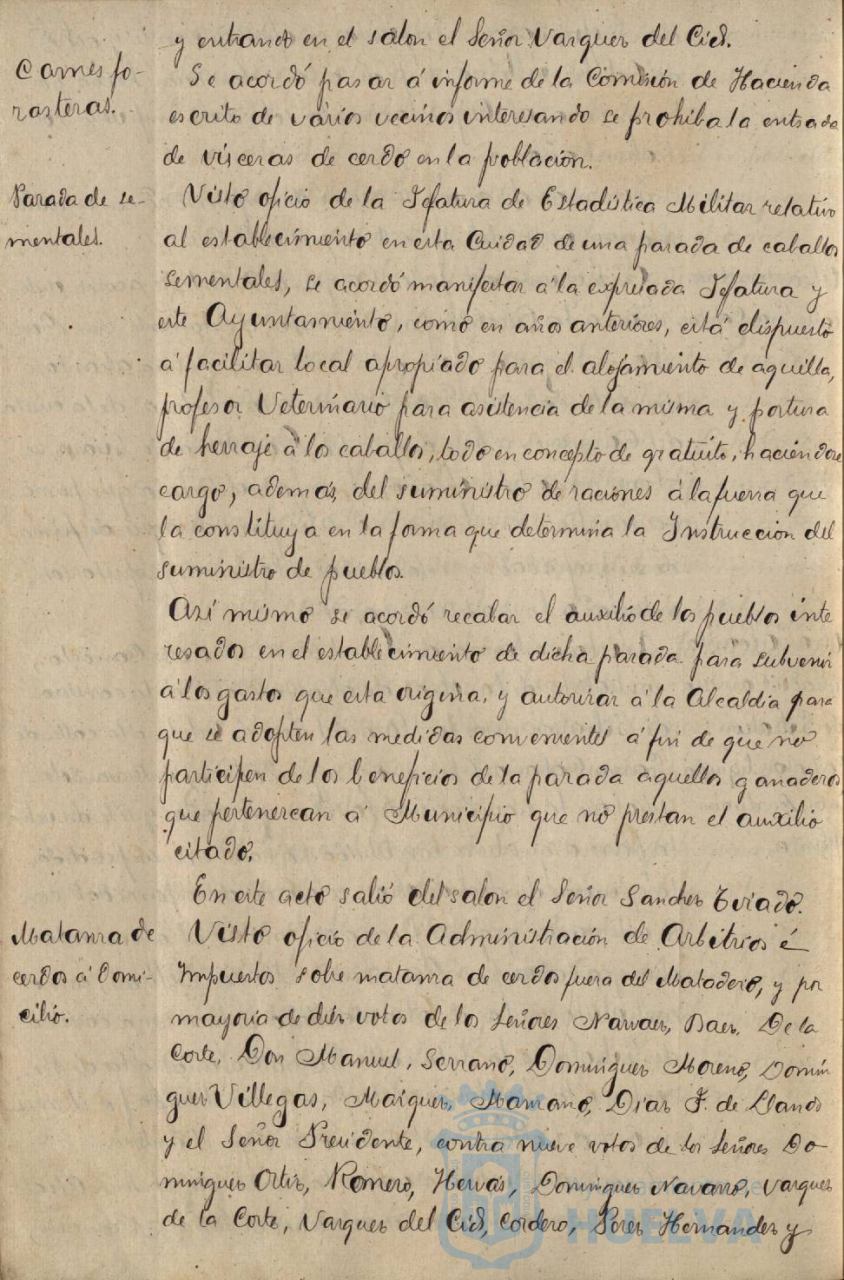 y entrando en el salon el Señor Vazquez del Cid.
Carnes fo-
rasteras.
Se acordó pasar á informe de la Comisión de Hacienda
escrito de varios vecinos interesando se prohiba la entrada
de visceras de cerdo en la población.
Parada de se-
mentales.
Visto oficio de la Jefatura de Estadistica Militar relativo
al establecimiento en esta Ciudad de una parada de caballos
sementales, se acordó manifestar á la expresada Jefatura y
este Ayuntamiento, como en años anteriores, está dispuesto
á facilitar local apropiado para el alojamiento de aquella,
profesor Veterinario para asistencia de la misma y postura
de herraje á los caballos, todo en concepto de gratuito, haciendose
cargo, además, del suministro de raciones á la fuerza que
la constituya en la forma que determina la Instruccion del
suministro de pueblos.
Asi mismo se acordó recabar el auxilio de los pueblos inte
resados en el establecimiento de dicha parada para subvenir
á los gastos que esta origina, y autorizar á la Alcaldia para
que se adopten las medidas convenientes á fin de que no
participen de los beneficios de la parada aquellos ganaderos
que pertenezcan á Municipio que no prestan el auxilio
citado.
En este acto salió del salon el Señor Sanchez Tirado.
Matanza de
cerdos á domi-
cilio.
Visto oficio de la Administración de Arbitrios é
Impuestos sobre matanza de cerdos fuera del Matadero, y por
mayoria de diéz votos de los Señores Narvaez, Baez, De la
Corte, Don Manuel, Serrano, Dominguez Moreno, Domin
guez Villegas, Maiquez, Manzano, Diaz F. de Llanos
y el Señor Presidente, contra nueve votos de los Señores Do-
minguez Ortiz, Romero, Hervás, Dominguez Navarro, Vazquez
de la Corte, Vazquez del Cid, Cordero, Perez Hernandez y
HUELVA